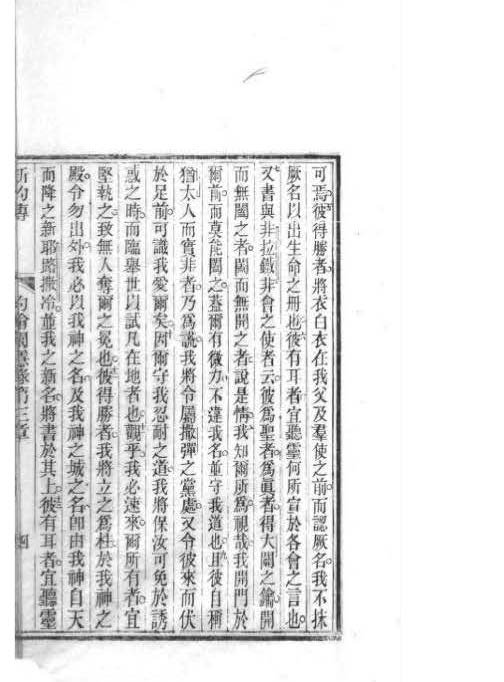 可焉彼得勝者將衣白衣在我父及羣使之前而認厥名我不抹
厥名以出生命之冊也彼有耳者宜聽靈何所宣於各會之言也
又書與非拉鐵非會之使者云彼爲聖者爲眞者得大闢之鑰開
而無闔之者闔而無開之者說是情我知爾所爲視哉我開門於
爾前而莫能闔之蓋爾有微力不違我名並守我道也彼自稱
猶太人而實非者乃爲謊我將令屬撒彈之黨處又令彼來而伏
於足前可識我愛爾矣因爾守我忍耐之道我將保汝可免於誘
惑之時而臨舉世以試凡在地者也觀乎我必速來爾所有者宜
堅執之致無人奪爾之冕也彼得勝者我將立之爲柱於我神之
殿令勿出外我必以我神之名及我神之城之名卽由我神自天
而降之新耶路撒冷並我之新名將書於其上彼有耳者宜聽靈
新約傳 約翰 第三章 四